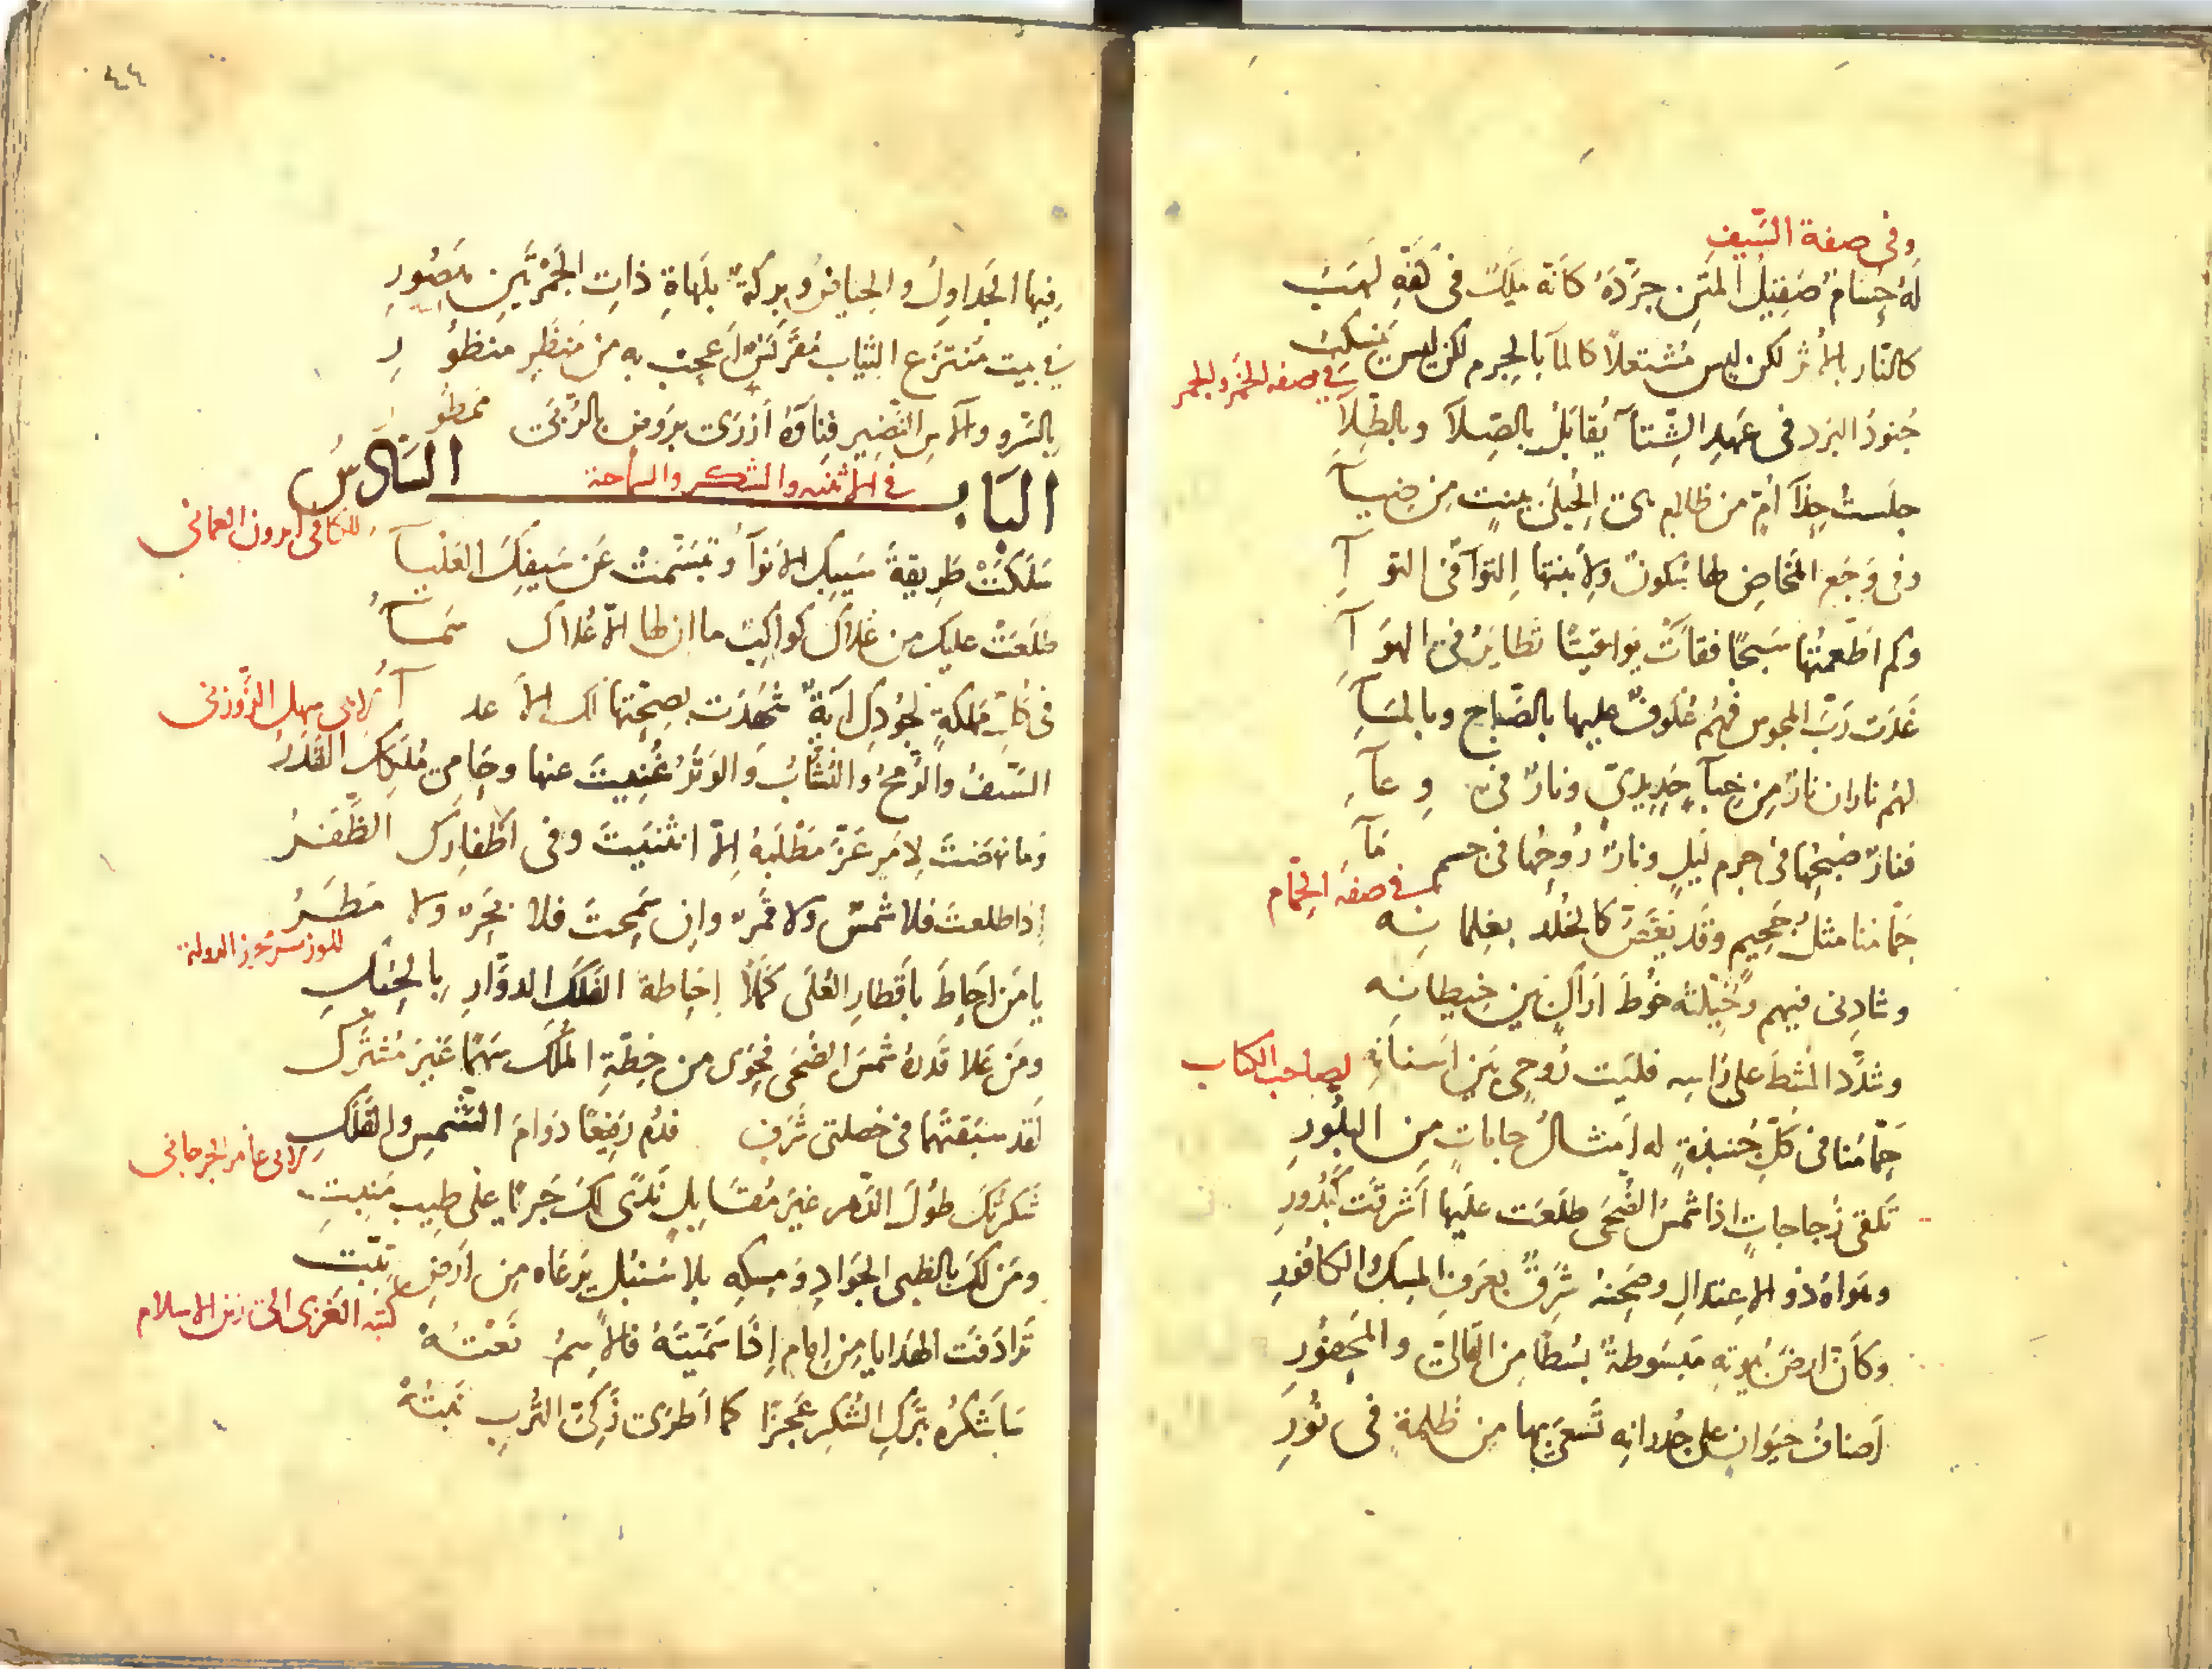 وفى صفة السَّيفِ
لَهُ حُسَامٌ صَقِيْلُ المَتنِ جَرَّدَهُ كَاَنَّه مَلِكٌ فى كَفِّهِ لَهَبُ
كالنَّار بالأثر لكن ليس مُشتعلاً كالمآ بالجرم لكن ليس يَنسكبُ
فى صفة الخمر والجمر
جُنودُ البَرد فى عَهدِ الشِّتآ يُقابَلُ بالصِّلآ وبالطِّلآ
جلست حِذآ من
وفى وَجَع المخَاض لها سُكونٌ ولابنتها اِلتوآ فى التوآ
وكم اَطعمتُها سَبَجًا فقآت يَواقيتًا تطايرُ فى الهوَآ
غَدَت رَبَّ المجوس فهُم عُكوفٌ عليها بالصَّباح وبالمسَآ
لهُم ناران نارٌ مِن خِبآ حَدِيدىٍّ ونارٌ فى وِعآ
فنارٌ فى جرم لَيلٍ ونارٌ رُوحُها فى جسم مَآ
فى صفة الحمّام
حَمّامُنا مثلُ جَحِيمٍ وقَد نَغَصَّ كالخُلد بغِلمانِه
وشادِنٍ فيهم وخِلتُه خُوطَ اَراكٍ بين خِيطانِه
وشدَّد المُشطَ على رَاسِه فلَيت رُوحى بَين اَسنانِهِ
لصاحب الكتاب
حمّامُنا فى كلِّ جُنبذةٍ له اَمثالُ جاماتٍ مِن البلُّورِ
تَلقى زُجاجاتٍ اذا شمسُ الضُّحَى طلَعَت علَيها اَشرقَت كبُدُورِ
وهَواهُ ذو الاعتدالِ وصَحنُهُ شَرِقٌ بعَرفِ المِسك والكافورِ
وكاَنَّ ارضَ بُيوتِهِ مَبسُوطةٌ بُسُطًا مِن القالىّ والمَحفُورِ
اَصنافُ حَيَوانٍ على جُدرانِه تَسعَى بها مِن ظُلمةٍ فى نُورِ
٤٤
فيها الجَداوِلُ والحِياضُ وبِركةٌ بلَهَاةِ ذاتِ مَصُورِ
فى بيت مُنتزَع الثياب اَعجِب به مِن مَنظَرٍ منظُورِ
بالسَّرو والآس النَّضِيرِ فِناؤهُ اَزرَى برَوضٍ بالرُّبَى ممطُورِ
البَابُ السَّادسُ
فى الاثنية والشكر والسماحة
للكافى ابرون العمانى
سَلَكَتْ طَرِيقةَ سَيبِكَ الاَنوآءُ وتبَسَّمَتْ عَن سَيفِكَ العَليآءُ
طلَعَتْ عليك من عُلاكَ كواكِبٌ ما ان لها الاّ عُلاكَ سَمآءُ
فى كلِّ مَملكةٍ لجُودِكَ آيةٌ شَهِدَت بصِحَّتِها لك الاَعدآءُ
لابى سهل الزَّوزنى
السَّيفُ والرُّمحُ والنُّشَّابُ والوَتَرُ غُنِيتَ عنها وحَامِى مُلكِكَ القَدَرُ
وَما نهَضتَ لِاَمرٍ عَزَّ مَطْلَبُهُ اِلاّ انثنَيتَ وفى اَظفارِكَ الظَّفَرُ
اِذا طلعتَ فلا شمسٌ ولا قَمَرٌ واِن سَمَحتَ فلا بَحَرٌ ولا مَطَرُ
للوزير الدولة
يا مَن اَحاطَ باَقطارِ العُلَى كَمَلًا اِحَاطةَ الفَلَكِ الدوَّارِ بالحُبُكِ
ومَن عَلا قَدرُهُ شمسَ الضُّحَى فحَوَى من خِطّةِ المُلك سَهمًا غَيرَ مُشتَرَكِ
لَقد سبَقتَهُما فى خَصلتَى شَرَفٍ فدُم رَفِيعًا دَوامَ الشَّمسِ والفَلَكِ
لابى عامر الجرجانى
شكَرتُكَ طُولَ الدَّهر غيرَ مُقَابِلٍ نَدًى لكَ جَرَّانا على طِيبِ مَنبِتِ
ومَن لَكَ بالظبى الجَوادِ ومِسكِه بلا سُنبُلٍ يَرعَاه مِن اَرضِ تُبَّتِ
كتبه الغزى الى زين الاسلام
تَرادَفَت الهَدايا مِن اِمامٍ اِذا سَمَّيتَهُ فالاِسمُ نَعْتُهُ
سَاَشكُرُه بتَركِ الشُّكرِ عَجزًا كما اَطرَى زَكِىَّ التُّربِ نَبتُهُ